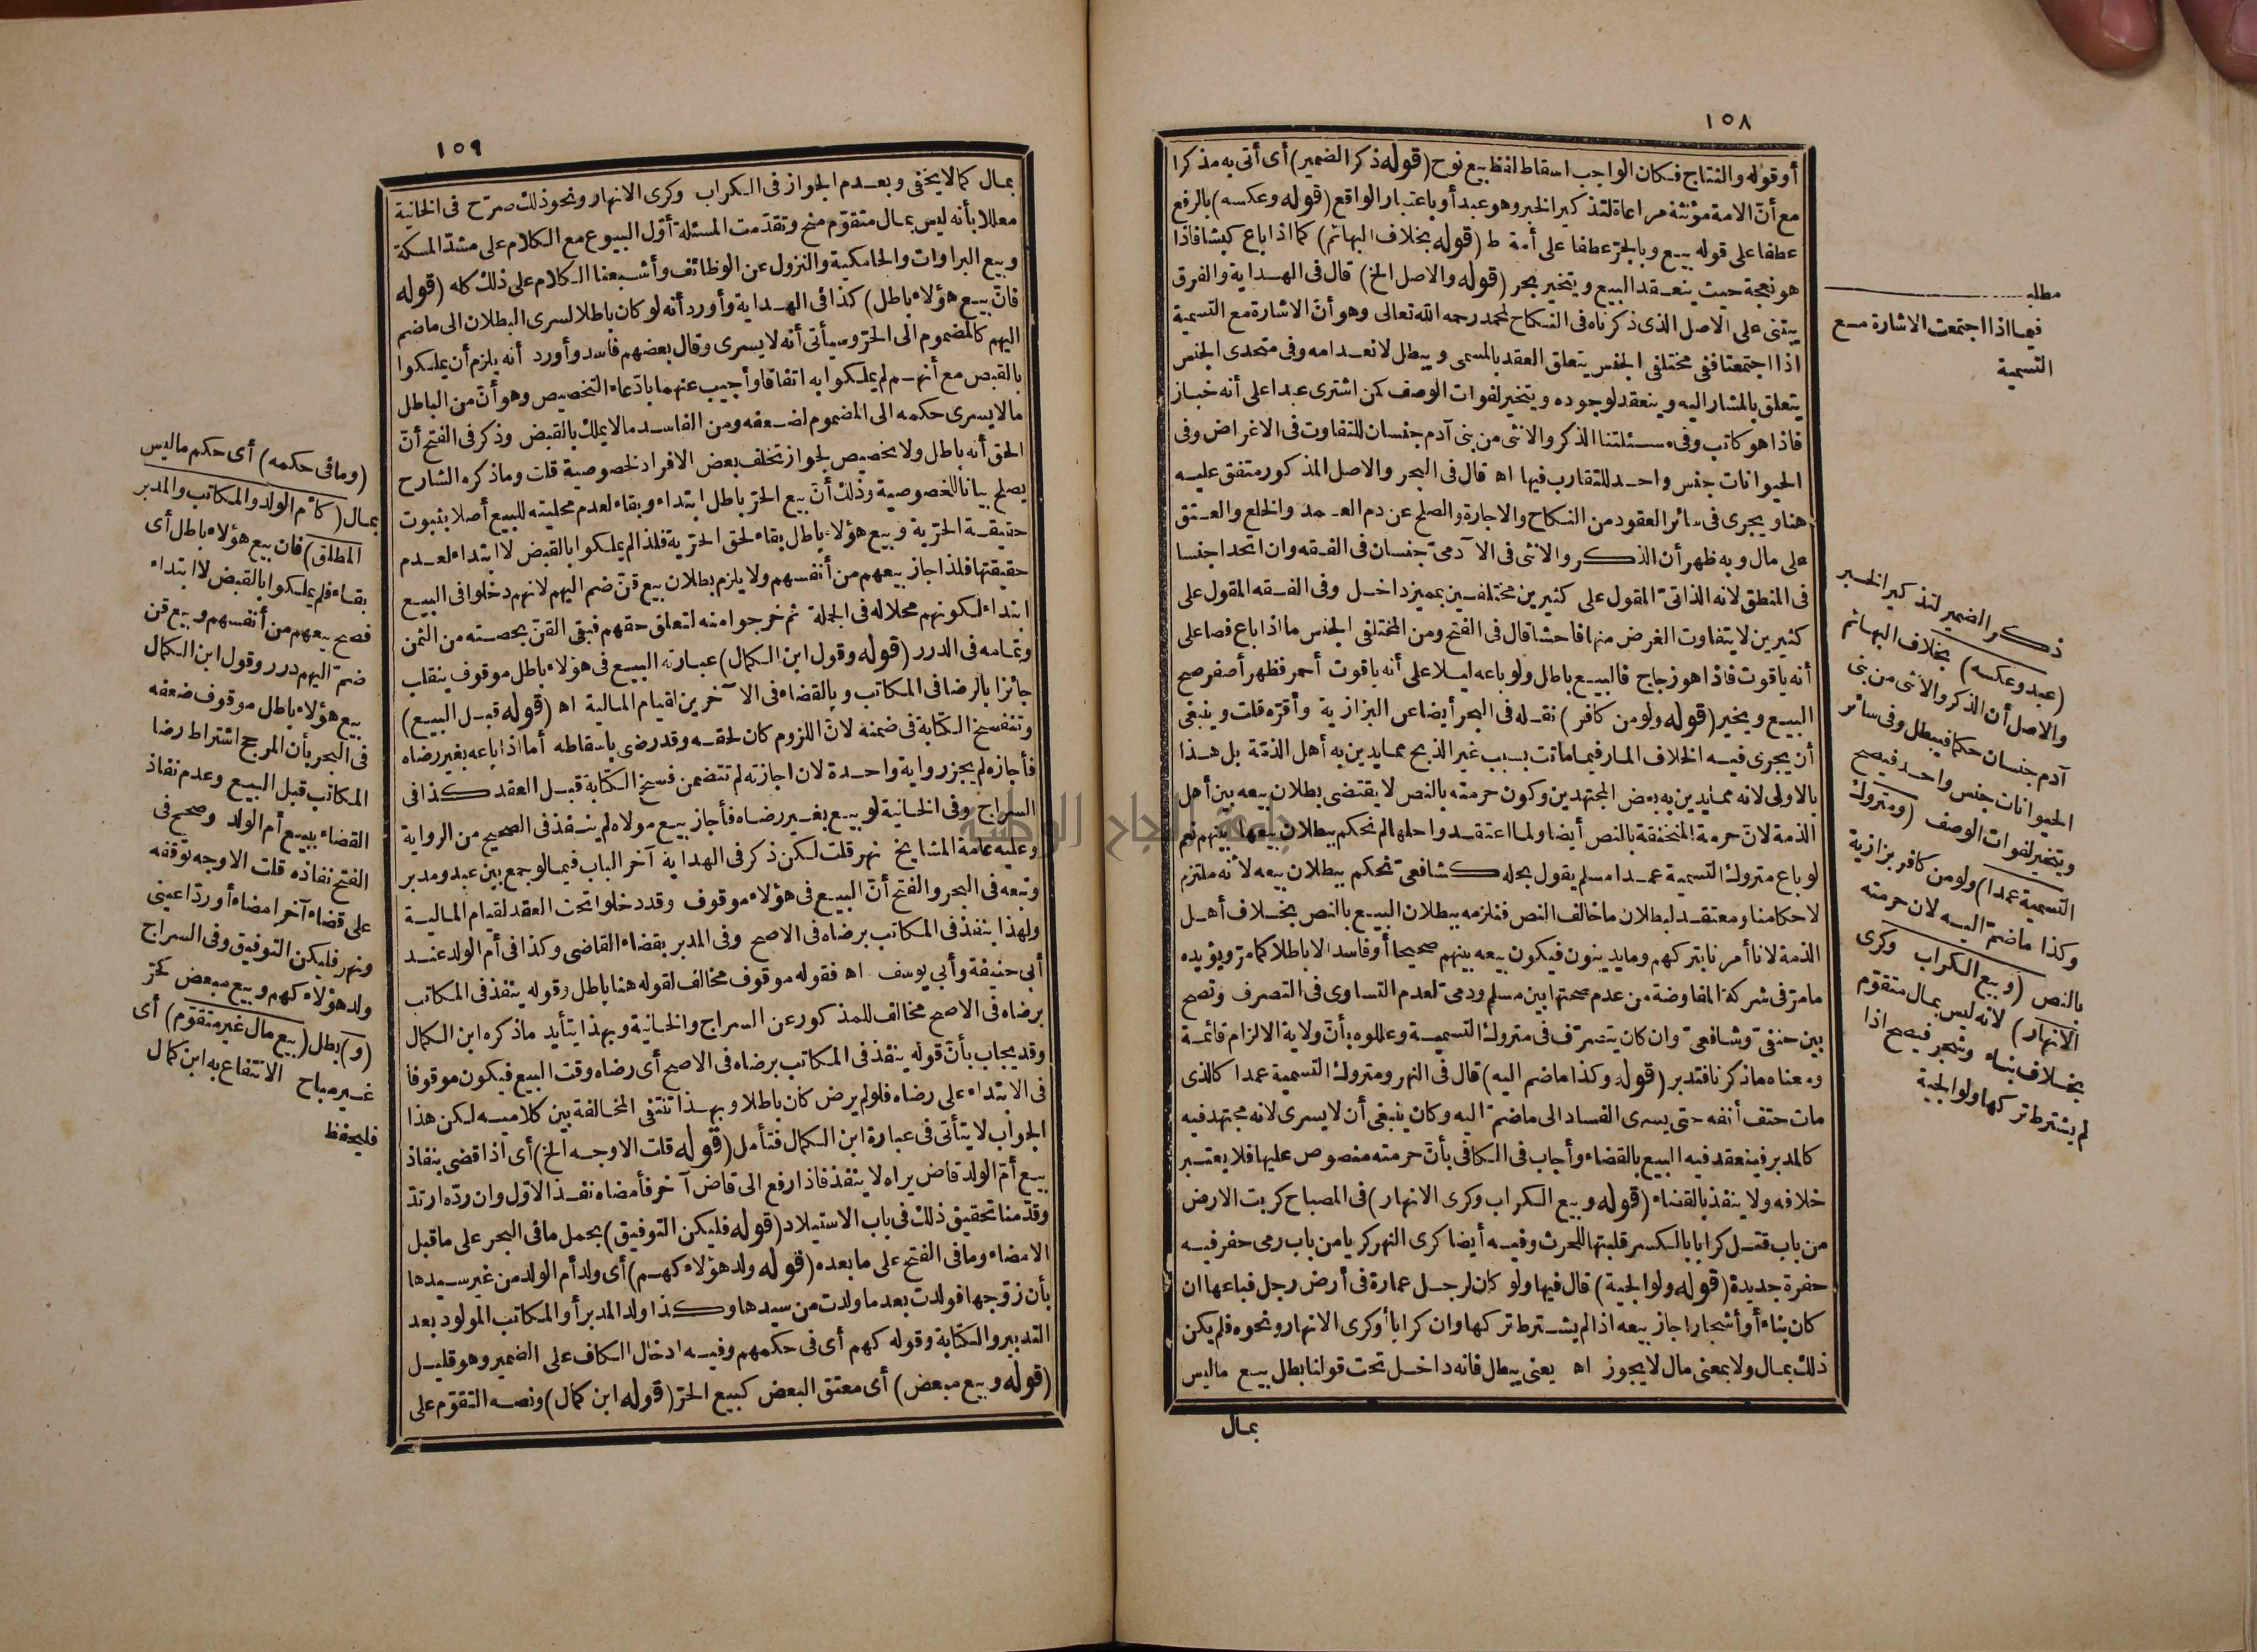 ١٥٨
أو قوله والنتاج فكان الواجب اسقاط لفظ بيع نوح (قوله ذكر الضمير) أى أتى به مذكرا
مع أنّ الامة مؤنثة مراعاة لتذكير الخبر وهو عبد أو باعتبار الواقع (قوله وعكسه) بالرفع
عطفا على قوله بيع وبالجرّ عطفا على أمة ط (قوله بخلاف البهائم) كما اذا باع كبشا فاذا
هو نعجة حيث ينعقد البيع ويتخير بحر (قوله والاصل الخ) قال فى الهداية والفرق
يبتنى على الاصل الذى ذكرناه فى النكاح لمحمد رحمه الله تعالى وهو أنّ الاشارة مع التسمية
اذا اجتمعتا ففى مختلفى الجنس يتعلق العقد بالمسمى ويبطل لانعدامه وفى متحدى الجنس
يتعلق بالمشار اليه وينعقد لوجوده ويتخير لفوات الوصف كمن اشترى عبدا على أنه خباز
فاذا هو كاتب وفى مسئلتنا الذكر والانثى من بنى آدم جنسان للتفاوت فى الاغراض وفى
الحيوانات جنس واحد للتقارب فيها اه قال فى البحر والاصل المذكور متفق عليه
هنا ويجرى فى سائر العقود من النكاح والاجارة والصلح عن دم العمد والخلع والعتق
على مال وبه ظهر أن الذكر والانثى فى الآدمىّ جنسان فى الفقه وان اتحدا جنسا
فى المنطق لانه الذاتىّ المقول على كثيرين مختلفين بمميز داخل وفى الفقه المقول على
كثيرين لا يتفاوت الغرض منها فاحشا قال فى الفتح ومن المختلفى الجنس ما اذا باع فصا على
أنه ياقوت فاذا هو زجاج فالبيع باطل ولو باعه ليلا على أنه ياقوت أحمر فظهر أصفر صح
البيع ويخير (قوله ولو من كافر) نقله فى البحر أيضا عن البزازية وأقرّه قلت وينبغى
أن يجرى فيه الخلاف المار فيما ماتت بسبب غير الذبح مما يدين به أهل الذمّة بل هذا
بالاولى لانه مما يدين به بعض المجتهدين وكون حرمته بالنص لا يقتضى بطلان بيعه بين أهل
الذمة لانّ حرمة المنخنقة بالنص أيضا ولما اعتقدوا حلها لم نحكم ببطلان بيعها بينهم نعم
لو باع متروك التسمية عمدا مسلم يقول بحله كشافعىّ نحكم ببطلان بيعه لانه ملتزم
لاحكامنا ومعتقد لبطلان ما خالف النص فنلزمه ببطلان البيع بالنص بخلاف أهل
الذمة لانا أمرنا بتركهم وما يدينون فيكون بيعه بينهم صحيحا أو فاسدا لا باطلا كما مرّ ويؤيده
ما مرّ فى شركة المفاوضة من عدم صحتها بين مسلم وذمىّ لعدم التساوى فى التصرف وتصح
بين حنفىّ وشافعىّ وان كان يتصرّف فى متروك التسمية وعللوه بأنّ ولاية الالزام قائمة
ومعناه ما ذكرنا فتدبر (قوله وكذا ما ضم اليه) قال فى النهر ومتروك التسمية عمدا كالذى
مات حتف أنفه حتى يسرى الفساد الى ما ضمّ اليه وكان ينبغى أن لا يسرى لانه مجتهد فيه
كالمدبر فينعقد فيه البيع بالقضاء وأجاب فى الكافى بأنّ حرمته منصوص عليها فلا يعتبر
خلافه ولا ينفذ بالقضاء (قوله وبيع الكراب وكرى الانهار) فى المصباح كربت الارض
من باب قتل كرابا بالكسر قلبتها للحرث وفيه أيضا كرى النهر كريا من باب رمى حفر فيه
حفرة جديدة (قوله ولوالجية) قال فيها ولو كان لرجل عمارة فى أرض رجل فباعها ان
كان بناء أو أشجارا جاز بيعه اذا لم يشترط تركها وان كرابا أو كرى الانهار ونحوه فلم يكن
ذلك بمال ولا بمعنى مال لا يجوز اه يعنى يبطل فانه داخل تحت قولنا بطل بيع ما ليس
بمال
مطلب
فيما اذا اجتمعت الاشارة مع
التسمية
ذكر الضمير لتذكير الخبر
(عبد وعكسه) بخلاف البهائم
والاصل أن الذكر والانثى من بنى
آدم جنسان حكما فيبطل وفى سائر
الحيوانات جنس واحد فيصح
ويتخير لفوات الوصف (ومتروك
التسمية عمدا) ولو من كافر بزازية
وكذا ما ضمّ اليه لان حرمته
بالنص (وبيع الكراب وكرى
الانهار) لانه ليس بمال متقوّم
بخلاف بناء وشجر فيصح اذا
لم يشترط تركها ولوالجية
١٥٩
بمال كما لا يخفى وبعدم الجواز فى الكراب وكرى الانهار ونحو ذلك صرّح فى الخانية
معللا بأنه ليس بمال متقوّم منح وتقدّمت المسئلة أوّل البيوع مع الكلام على مشدّ المسكة
وبيع البراوات والجامكية والنزول عن الوظائف وأشبعنا الكلام على ذلك كله (قوله
فانّ بيع هؤلاء باطل) كذا فى الهداية وأورد أنه لو كان باطلا لسرى البطلان الى ما ضم
اليهم كالمضموم الى الحرّ وسيأتى أنه لا يسرى وقال بعضهم فاسد وأورد أنه يلزم أن يملكوا
بالقبض مع أنهم لم يملكوا به اتفاقا وأجيب عنهما بادّعاء التخصيص وهو أنّ من الباطل
ما لا يسرى حكمه الى المضموم لضعفه ومن الفاسد ما لا يملك بالقبض وذكر فى الفتح أنّ
الحق أنه باطل ولا تخصيص لجواز تخلف بعض الافراد لخصوصية قلت وما ذكره الشارح
يصلح بيانا للخصوصية وذلك أنّ بيع الحرّ باطل ابتداء وبقاء لعدم محليته للبيع أصلا بثبوت
حقيقة الحرّية وبيع هؤلاء باطل بقاء لحق الحرّية فلذا لم يملكوا بالقبض لا ابتداء لعدم
حقيقتها فلذا جاز بيعهم من أنفسهم ولا يلزم بطلان بيع قنّ ضم اليهم لانهم دخلوا فى البيع
ابتداء لكونهم محلا له فى الجملة ثم خرجوا منه لتعلق حقهم فبقى القنّ بحصته من الثمن
وتمامه فى الدرر (قوله وقول ابن الكمال) عبارته البيع فى هؤلاء باطل موقوف ينقلب
جائزا بالرضا فى المكاتب وبالقضاء فى الآخرين لقيام المالية اه (قوله قبل البيع)
وتنفسخ الكتابة فى ضمنه لانّ اللزوم كان لحقه وقد رضى باسقاطه أما اذا باعه بغير رضاه
فأجازه لم يجز رواية واحدة لان اجازته لم تتضمن فسخ الكتابة قبل العقد كذا فى
السراج وفى الخانية لو بيع بغير رضاه فأجاز بيع مولاه لم ينفذ فى الصحيح من الرواية
وعليه عامة المشايخ نهر قلت لكن ذكر فى الهداية آخر الباب فيما لو جمع بين عبد ومدبر
وتبعه فى البحر والفتح أنّ البيع فى هؤلاء موقوف وقد دخلوا تحت العقد لقيام المالية
ولهذا ينفذ فى المكاتب برضاه فى الاصح وفى المدبر بقضاء القاضى وكذا فى أم الولد عند
أبى حنيفة وأبى يوسف اه فقوله موقوف مخالف لقوله هنا باطل وقوله ينفذ فى المكاتب
برضاه فى الاصح مخالف للمذكور عن السراج والخانية وبهذا يتأيد ما ذكره ابن الكمال
وقد يجاب بأنّ قوله ينفذ فى المكاتب برضاه فى الاصح أى رضاه وقت البيع فيكون موقوفا
فى الابتداء على رضاه فلو لم يرض كان باطلا وبهذا تنتفى المخالفة بين كلاميه لكن هذا
الجواب لا يتأتى فى عبارة ابن الكمال فتأمل (قوله قلت الاوجه الخ) أى اذا قضى بنفاذ
بيع أمّ الولد قاض يراه لا ينفذ فاذا رفع الى قاض آخر فأمضاه نفذ الاوّل وان ردّه ارتدّ
وقدّمنا تحقيق ذلك فى باب الاستيلاد (قوله فليكن التوفيق) بحمل ما فى البحر على ما قبل
الامضاء وما فى الفتح على ما بعده (قوله ولد هؤلاء كهم) أى ولد أم الولد من غير سيدها
بأن زوّجها فولدت بعد ما ولدت من سيدها وكذا ولد المدبر أو المكاتب المولود بعد
التدبير والكتابة وقوله كهم أى فى حكمهم وفيه ادخال الكاف على الضمير وهو قليل
(قوله وبيع مبعض) أى معتق البعض كبيع الحرّ (قوله ابن كمال) ونصه التقوّم على
(وما فى حكمه) أى حكم ما ليس
بمال (كأم الولد والمكاتب والمدبر
المطلق) فان بيع هؤلاء باطل أى
بقاء فلم يملكوا بالقبض لا ابتداء
فصح بيعهم من أنفسهم وبيع قن
ضمّ اليهم درر وقول ابن الكمال
بيع هؤلاء باطل موقوف ضعفه
فى البحر بأن المرجح اشتراط رضا
المكاتب قبل البيع وعدم نفاذ
القضاء ببيع أم الولد وصحح فى
الفتح نفاذه قلت الاوجه توقفه
على قضاء آخر امضاء أو ردّا عينى
ونهر فليكن التوفيق وفى السراج
ولد هؤلاء كهم وبيع مبعض كحرّ
(و) بطل (بيع مال غير متقوّم) أى
غير مباح الانتفاع به ابن كمال
فليحفظ
جامعة النجاح الوطنية